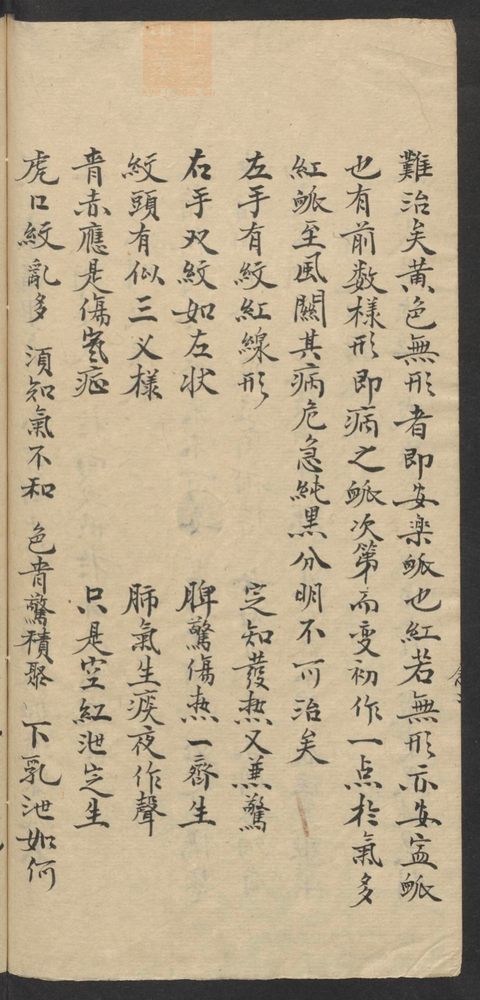 難治矣黄色無形者即安楽䘑也紅若無形亦安寍䘑
也有前数様形即病之䘑次第而変初作一点於氣多
紅䘑至風關其病危急純黒分明不可治矣
左手有紋紅線形 定知發热又兼驚
右手双紋如左状 脾驚傷热一齊生
紋頭有似三义様 肺氣生痰夜作聲
青赤應是傷寒症 只是空紅泄定生
虎口紋亂多 須知氣不和 色青驚積聚 下乳泄如何